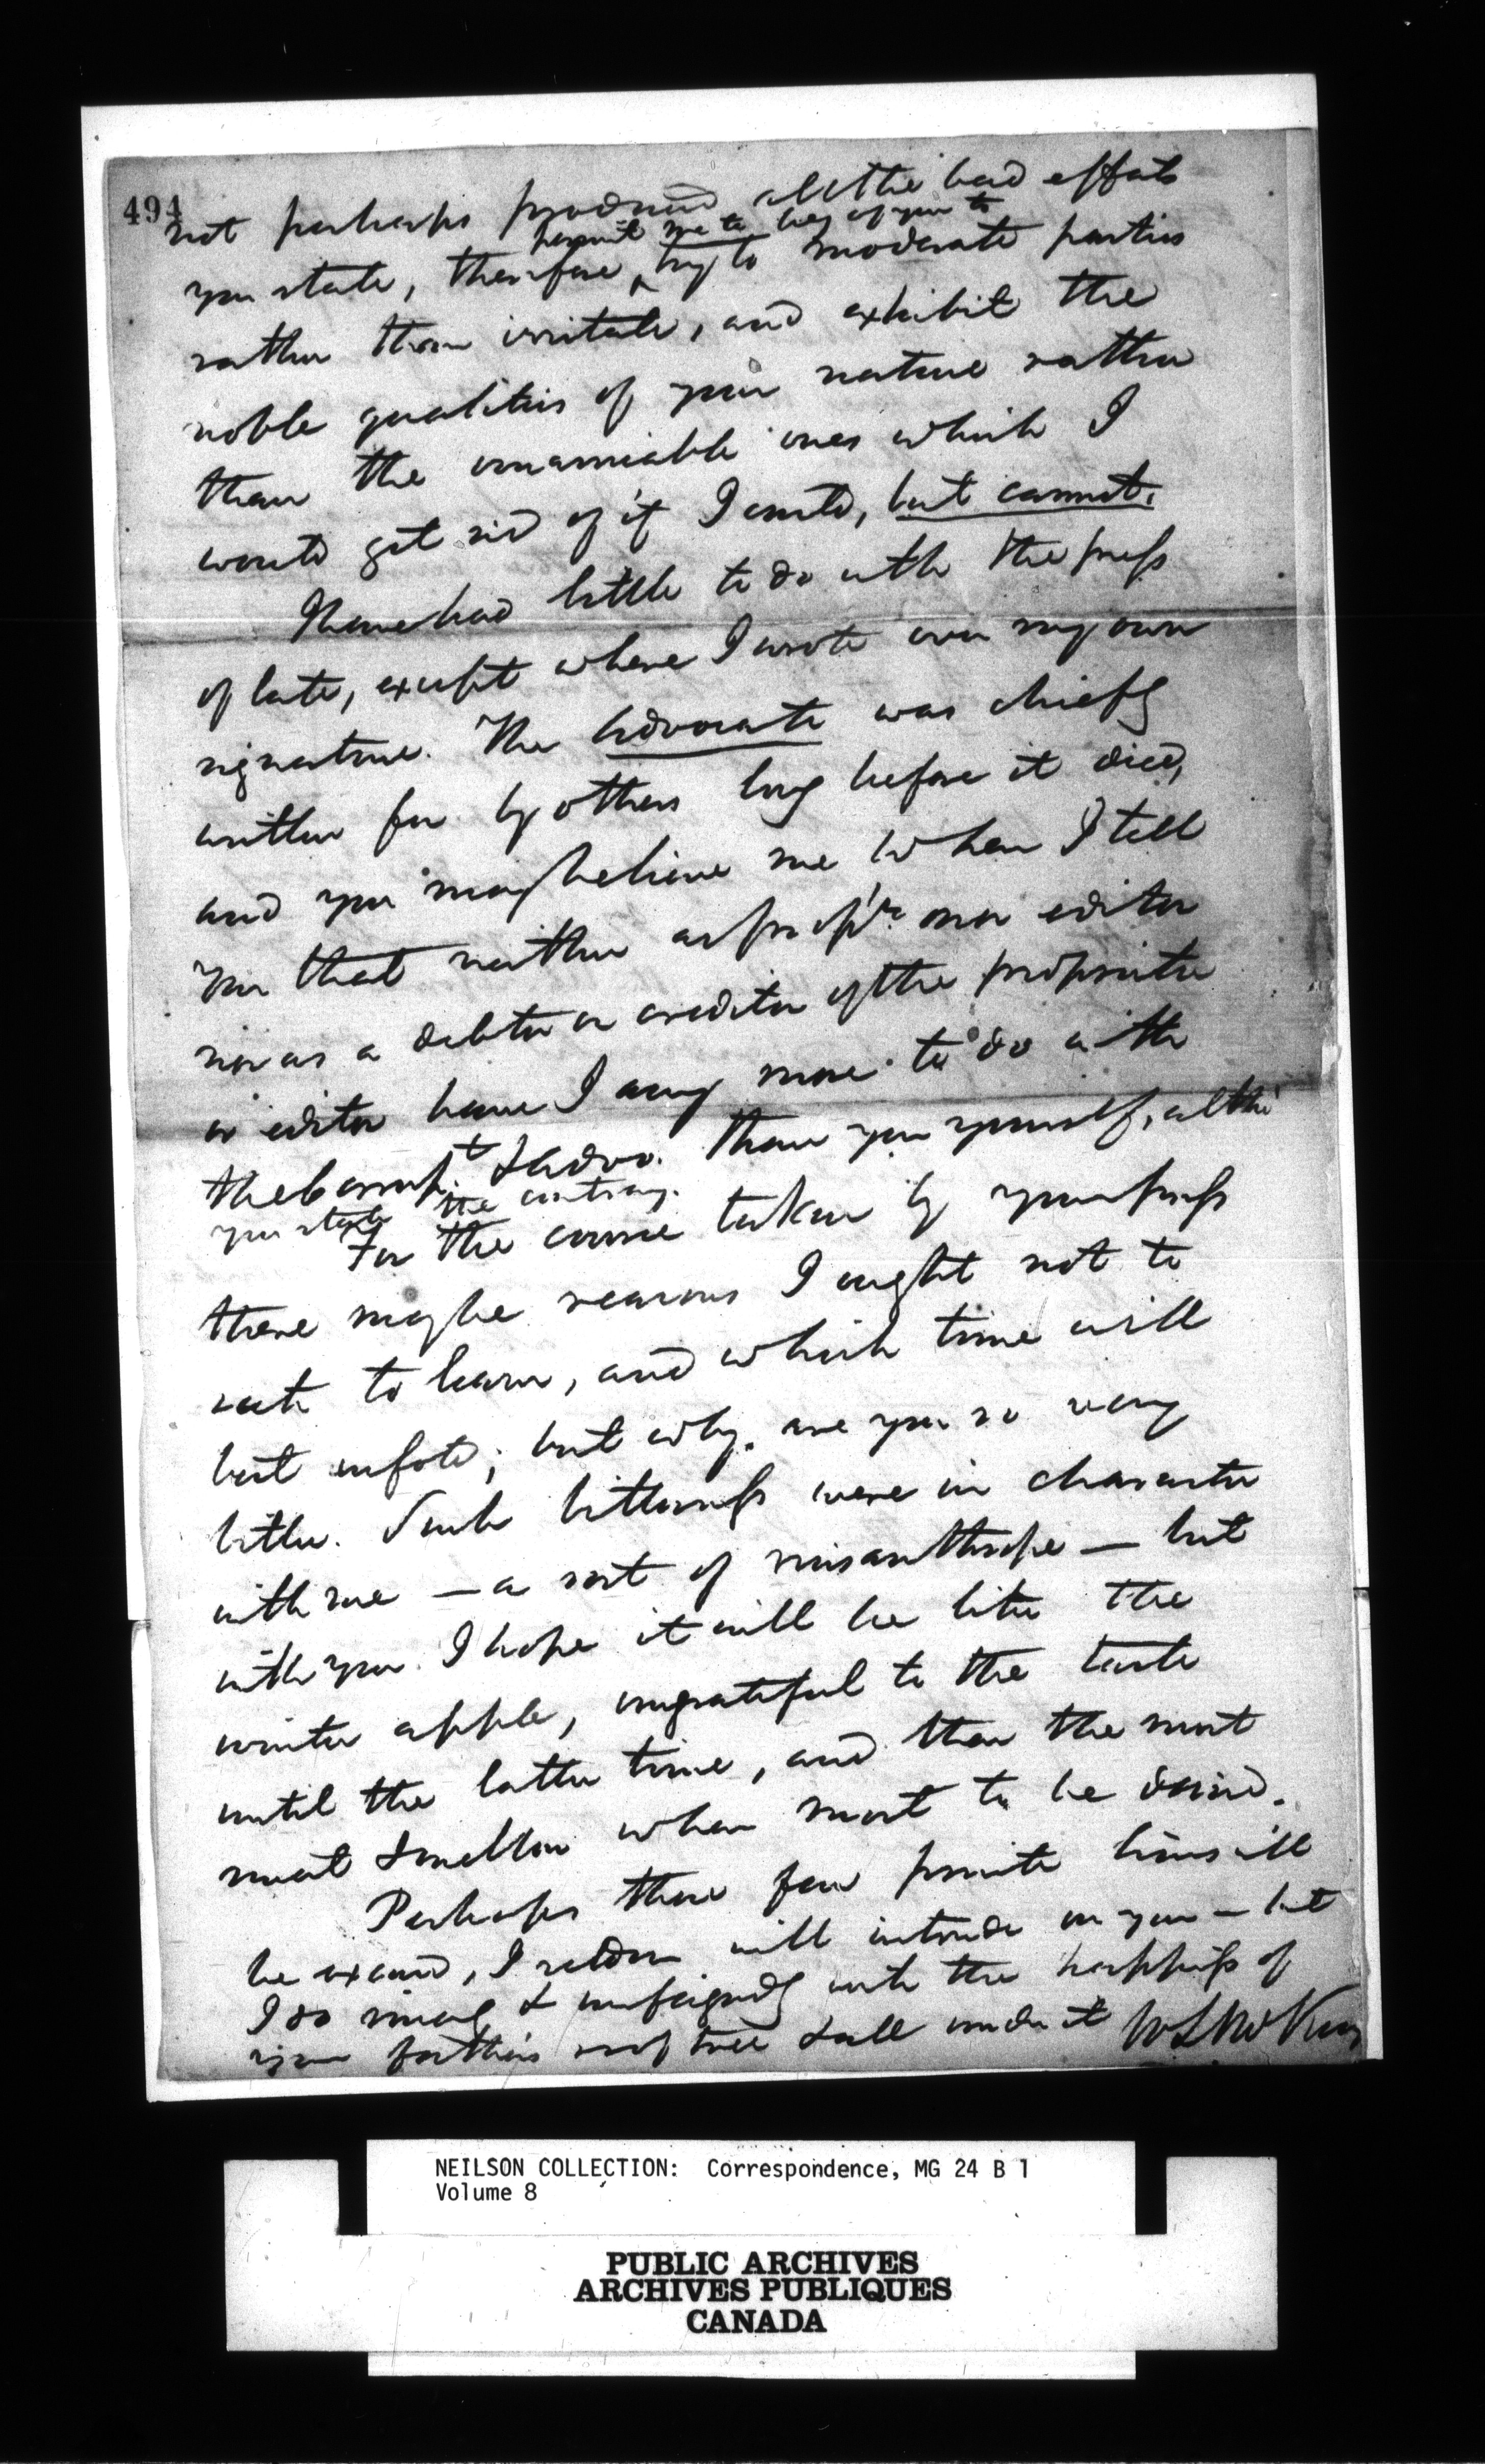 494
not perhaps produced all the bad effects
permit me to beg of you to
you state, therefore ‸ try to moderate parties
rather than irritate, and exhibit the
noble qualities of your nature rather
than the unamiable ones which I
would get rid of if I could, but cannot.
I have had little to do with the press
of late, except where I wrote over my own
signature. The Advocate was chiefly
written for by others long before it died,
and you may believe me when I tell
you that neither as prop'r. nor editor
nor as a debtor or creditor of the proprietor
or editor have I any more to do with
the Corresp.t & Advo. than you yourself, altho'
you state the contrary.
For the course taken by your press
there may be reasons I ought not to
seek to learn, and which time will
best unfold; but why are you so very
bitter. Such bitterness were in character
with me — a sort of misanthrope — but
with you I hope it will be like the
winter apple, ungrateful to the taste
until the latter time, and then the most
sweet & mellow when most to be desired.
Perhaps these few private lines will
be excused, I seldom will intrude on you — but
I do sincerely & unfeignedly wish the happiness of
your father's roof tree & all under it W L McKen
NEILSON COLLECTION: Correspondence, MG 24 B 1
Volume 8
PUBLIC ARCHIVES
ARCHIVES PUBLIQUES
CANADA